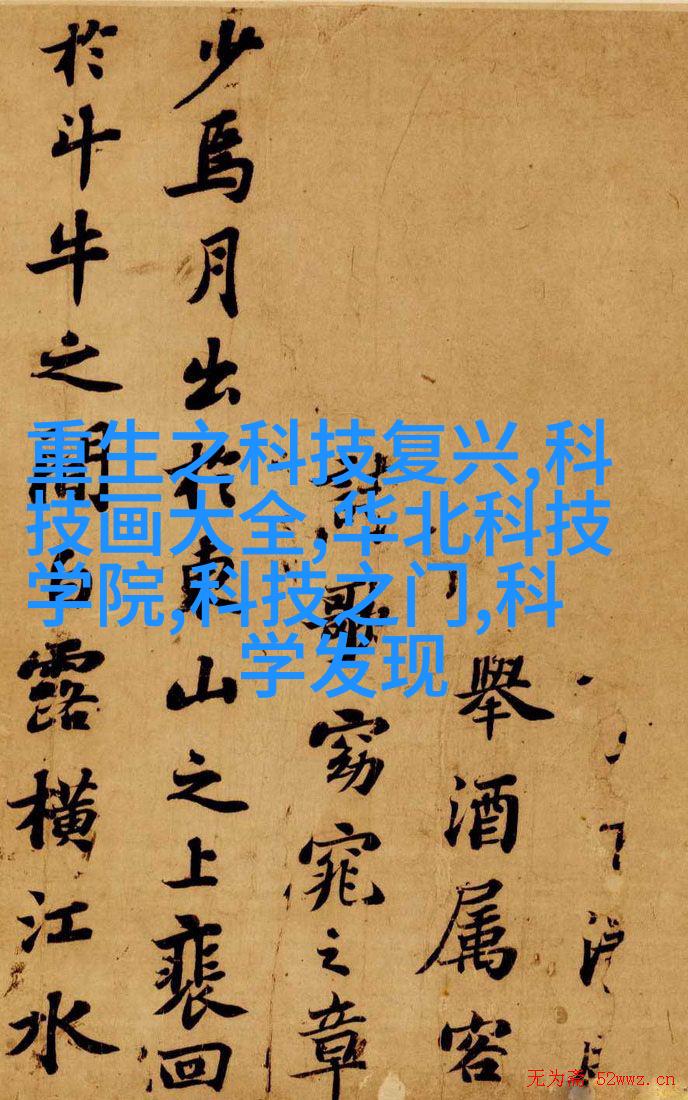 舉酒属客
歌窈窕之章
少焉月出於東山之上裴回
於斗牛之間白露橫江水
重生之科技复兴,科
技画大全,华北科技
学院,科技之门,科
学发现
无为斋 52wwz.cn